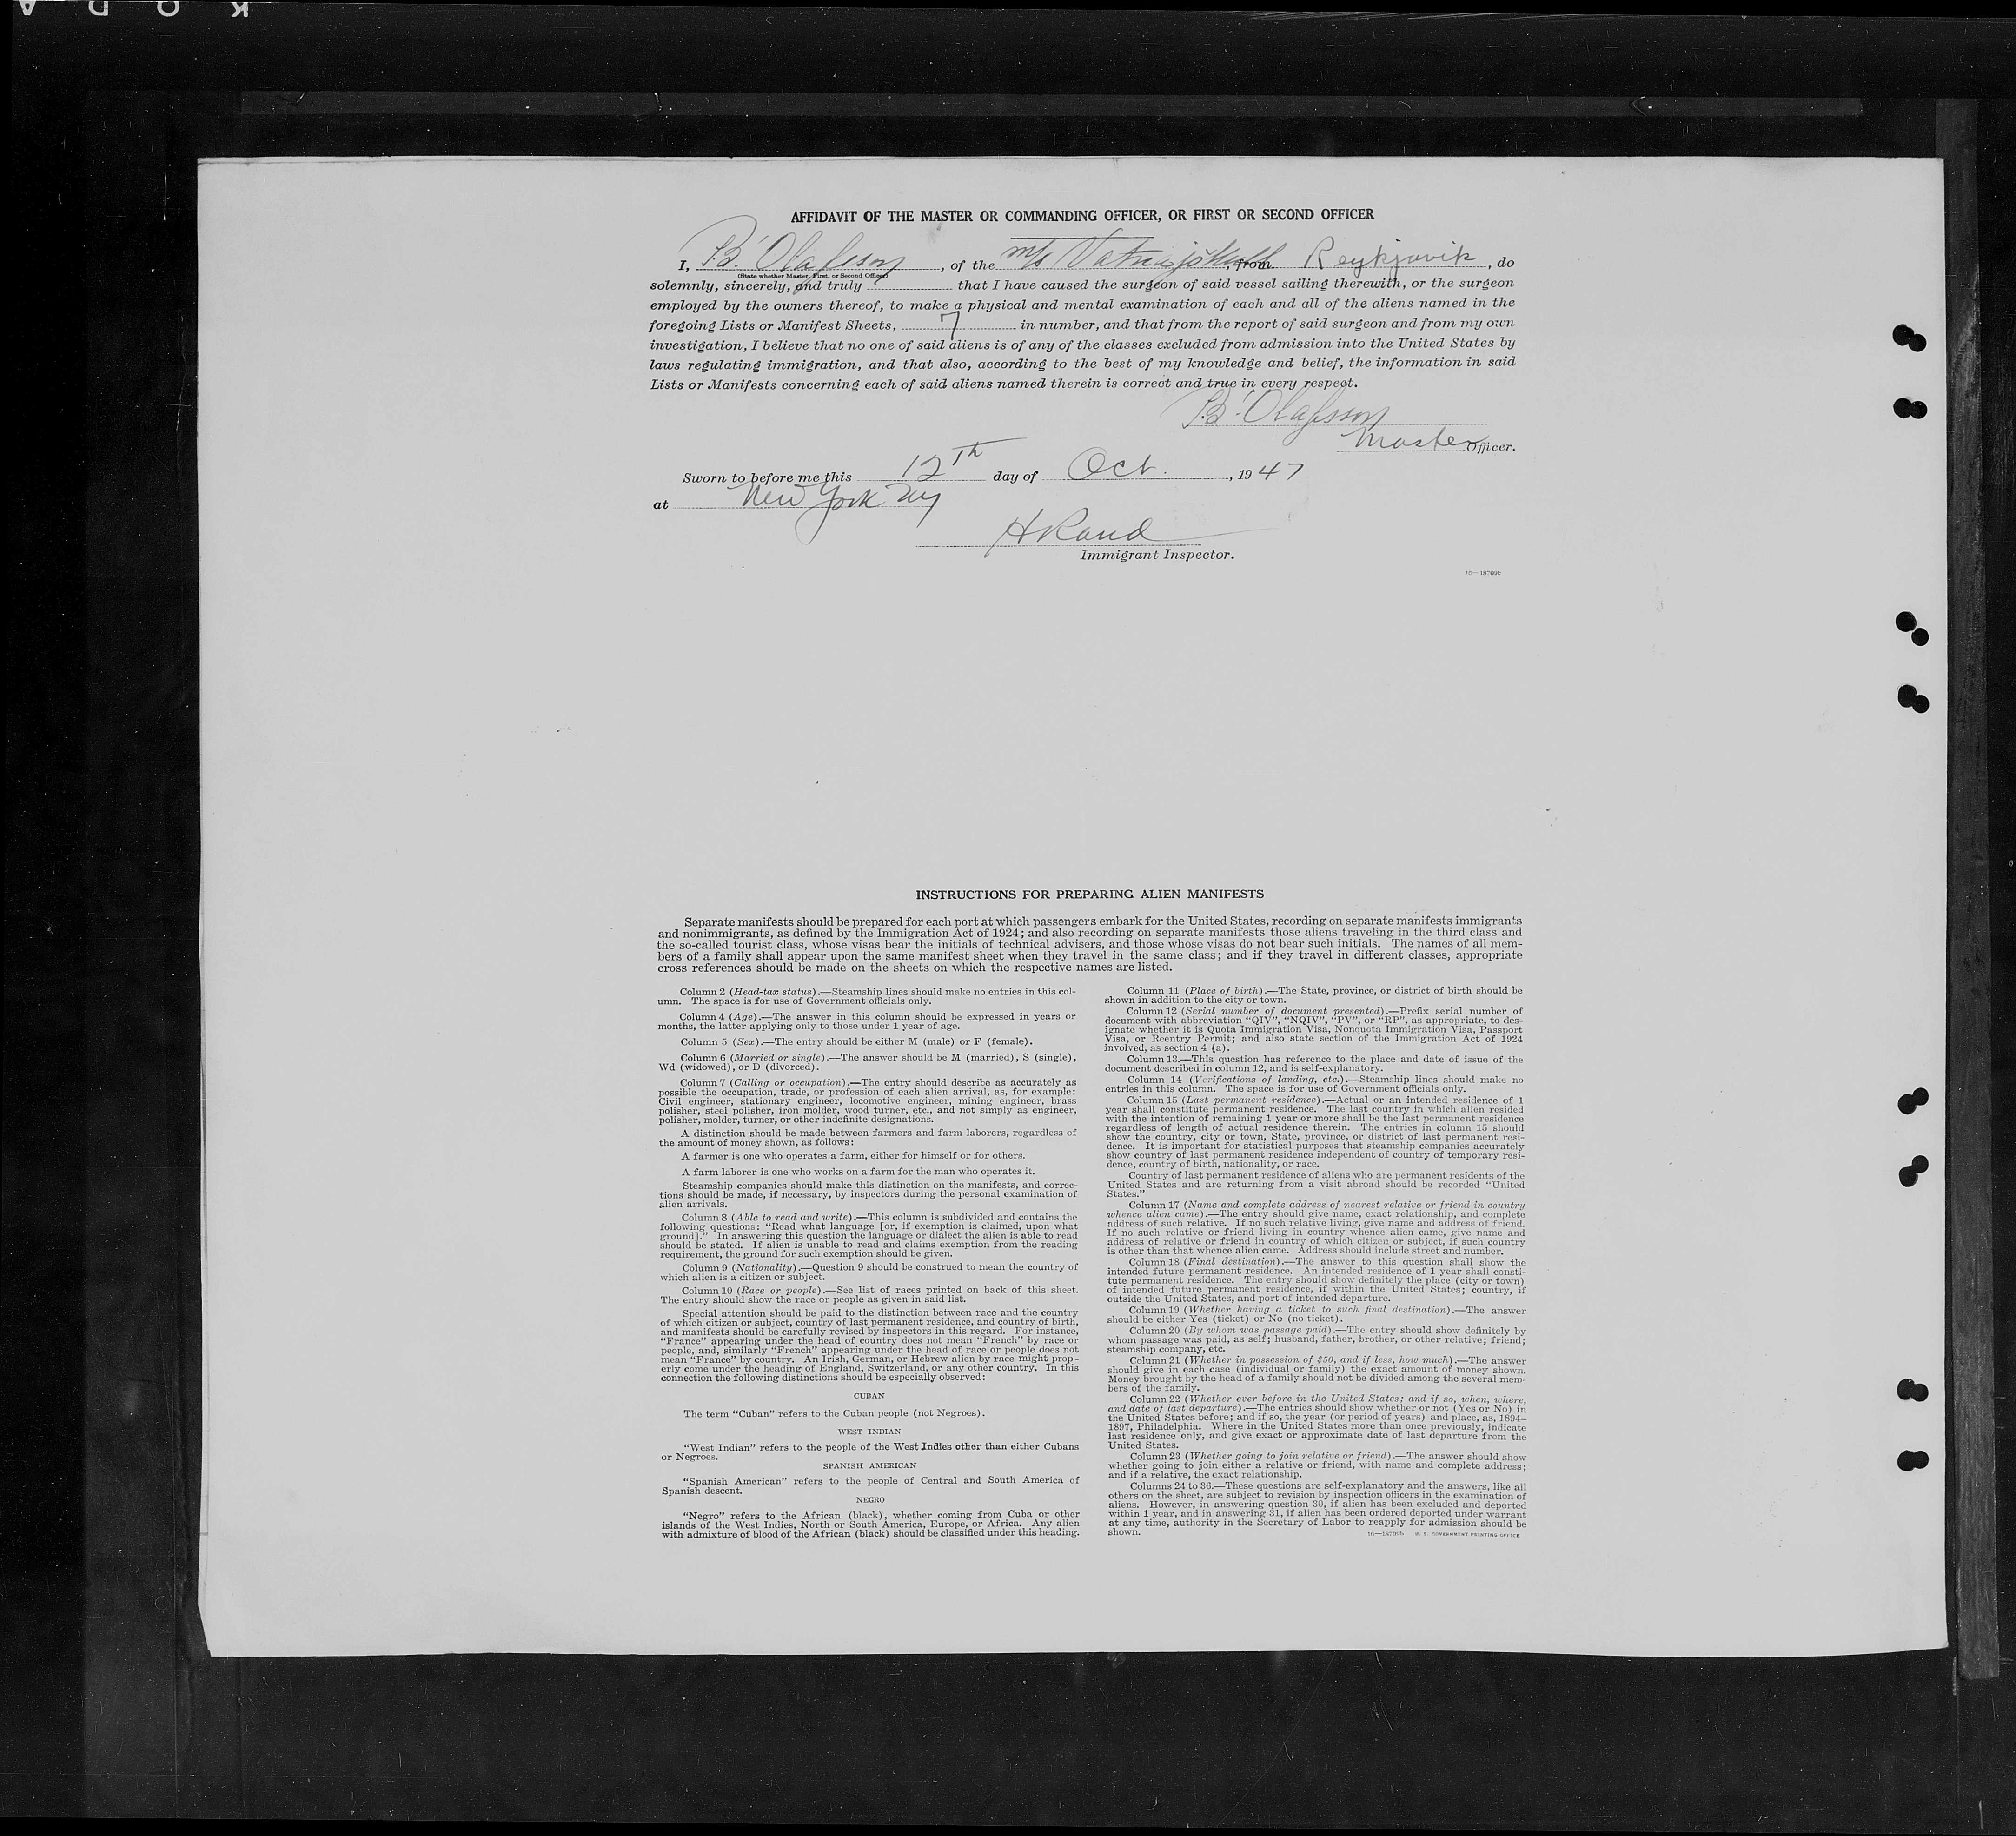 KODA
AFFIDAVIT OF THE MASTER OR COMMANDING OFFICER, OR FIRST OR SECOND OFFICER
I, B. Olafsson, of the m/s Vatnajökull, from Reykjavik, do
(State whether Master, First, or Second Officer)
solemnly, sincerely, and truly that I have caused the surgeon of said vessel sailing therewith, or the surgeon
employed by the owners thereof, to make a physical and mental examination of each and all of the aliens named in the
foregoing Lists or Manifest Sheets, 7 in number, and that from the report of said surgeon and from my own
investigation, I believe that no one of said aliens is of any of the classes excluded from admission into the United States by
laws regulating immigration, and that also, according to the best of my knowledge and belief, the information in said
Lists or Manifests concerning each of said aliens named therein is correct and true in every respect.
B. Olafsson
Master Officer.
Sworn to before me this 12th day of Oct., 1947
at New York NY
H Rand
Immigrant Inspector.
INSTRUCTIONS FOR PREPARING ALIEN MANIFESTS
Separate manifests should be prepared for each port at which passengers embark for the United States, recording on separate manifests immigrants
and nonimmigrants, as defined by the Immigration Act of 1924; and also recording on separate manifests those aliens traveling in the third class and
the so-called tourist class, whose visas bear the initials of technical advisers, and those whose visas do not bear such initials. The names of all mem-
bers of a family shall appear upon the same manifest sheet when they travel in the same class; and if they travel in different classes, appropriate
cross references should be made on the sheets on which the respective names are listed.
Column 2 (Head-tax status).—Steamship lines should make no entries in this col-
umn. The space is for use of Government officials only.
Column 4 (Age).—The answer in this column should be expressed in years or
months, the latter applying only to those under 1 year of age.
Column 5 (Sex).—The entry should be either M (male) or F (female).
Column 6 (Married or single).—The answer should be M (married), S (single),
Wd (widowed), or D (divorced).
Column 7 (Calling or occupation).—The entry should describe as accurately as
possible the occupation, trade, or profession of each alien arrival, as, for example:
Civil engineer, stationary engineer, locomotive engineer, mining engineer, brass
polisher, steel polisher, iron molder, wood turner, etc., and not simply as engineer,
polisher, molder, turner, or other indefinite designations.
A distinction should be made between farmers and farm laborers, regardless of
the amount of money shown, as follows:
A farmer is one who operates a farm, either for himself or for others.
A farm laborer is one who works on a farm for the man who operates it.
Steamship companies should make this distinction on the manifests, and correc-
tions should be made, if necessary, by inspectors during the personal examination of
alien arrivals.
Column 8 (Able to read and write).—This column is subdivided and contains the
following questions: “Read what language [or, if exemption is claimed, upon what
ground].” In answering this question the language or dialect the alien is able to read
should be stated. If alien is unable to read and claims exemption from the reading
requirement, the ground for such exemption should be given.
Column 9 (Nationality).—Question 9 should be construed to mean the country of
which alien is a citizen or subject.
Column 10 (Race or people).—See list of races printed on back of this sheet.
The entry should show the race or people as given in said list.
Special attention should be paid to the distinction between race and the country
of which citizen or subject, country of last permanent residence, and country of birth,
and manifests should be carefully revised by inspectors in this regard. For instance,
“France” appearing under the head of country does not mean “French” by race or
people, and, similarly “French” appearing under the head of race or people does not
mean “France” by country. An Irish, German, or Hebrew alien by race might prop-
erly come under the heading of England, Switzerland, or any other country. In this
connection the following distinctions should be especially observed:
CUBAN
The term “Cuban” refers to the Cuban people (not Negroes).
WEST INDIAN
“West Indian” refers to the people of the West Indies other than either Cubans
or Negroes.
SPANISH AMERICAN
“Spanish American” refers to the people of Central and South America of
Spanish descent.
NEGRO
“Negro” refers to the African (black), whether coming from Cuba or other
islands of the West Indies, North or South America, Europe, or Africa. Any alien
with admixture of blood of the African (black) should be classified under this heading.
Column 11 (Place of birth).—The State, province, or district of birth should be
shown in addition to the city or town.
Column 12 (Serial number of document presented).—Prefix serial number of
document with abbreviation “QIV”, “NQIV”, “PV”, or “RP”, as appropriate, to des-
ignate whether it is Quota Immigration Visa, Nonquota Immigration Visa, Passport
Visa, or Reentry Permit; and also state section of the Immigration Act of 1924
involved, as section 4 (a).
Column 13.—This question has reference to the place and date of issue of the
document described in column 12, and is self-explanatory.
Column 14 (Verifications of landing, etc.).—Steamship lines should make no
entries in this column. The space is for use of Government officials only.
Column 15 (Last permanent residence).—Actual or an intended residence of 1
year shall constitute permanent residence. The last country in which alien resided
with the intention of remaining 1 year or more shall be the last permanent residence
regardless of length of actual residence therein. The entries in column 15 should
show the country, city or town, State, province, or district of last permanent resi-
dence. It is important for statistical purposes that steamship companies accurately
show country of last permanent residence independent of country of temporary resi-
dence, country of birth, nationality, or race.
Country of last permanent residence of aliens who are permanent residents of the
United States and are returning from a visit abroad should be recorded “United
States.”
Column 17 (Name and complete address of nearest relative or friend in country
whence alien came).—The entry should give name, exact relationship, and complete
address of such relative. If no such relative living, give name and address of friend.
If no such relative or friend living in country whence alien came, give name and
address of relative or friend in country of which citizen or subject, if such country
is other than that whence alien came. Address should include street and number.
Column 18 (Final destination).—The answer to this question shall show the
intended future permanent residence. An intended residence of 1 year shall consti-
tute permanent residence. The entry should show definitely the place (city or town)
of intended future permanent residence, if within the United States; country, if
outside the United States, and port of intended departure.
Column 19 (Whether having a ticket to such final destination).—The answer
should be either Yes (ticket) or No (no ticket).
Column 20 (By whom was passage paid).—The entry should show definitely by
whom passage was paid, as self; husband, father, brother, or other relative; friend;
steamship company, etc.
Column 21 (Whether in possession of $50, and if less, how much).—The answer
should give in each case (individual or family) the exact amount of money shown.
Money brought by the head of a family should not be divided among the several mem-
bers of the family.
Column 22 (Whether ever before in the United States; and if so, when, where,
and date of last departure).—The entries should show whether or not (Yes or No) in
the United States before; and if so, the year (or period of years) and place, as, 1894–
1897, Philadelphia. Where in the United States more than once previously, indicate
last residence only, and give exact or approximate date of last departure from the
United States.
Column 23 (Whether going to join relative or friend).—The answer should show
whether going to join either a relative or friend, with name and complete address;
and if a relative, the exact relationship.
Columns 24 to 36.—These questions are self-explanatory and the answers, like all
others on the sheet, are subject to revision by inspection officers in the examination of
aliens. However, in answering question 30, if alien has been excluded and deported
within 1 year, and in answering 31, if alien has been ordered deported under warrant
at any time, authority in the Secretary of Labor to reapply for admission should be
shown.
U. S. GOVERNMENT PRINTING OFFICE